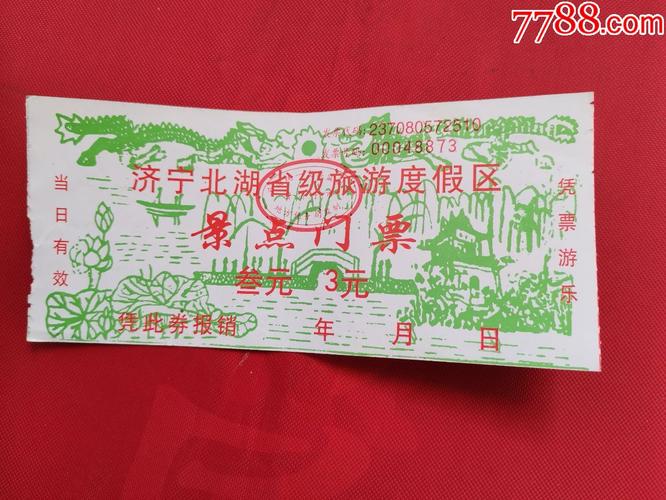 7788.com
发票代码:237080572510
发票号码:00048873
济宁北湖省级旅游度假区
景点门票
叁元 3元
当日有效
凭票游乐
凭此券报销 年 月 日